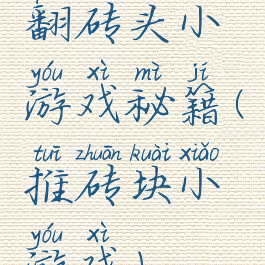 翻砖头小
yóu xì mì jí
游戏秘籍(
tuī zhuān kuài xiǎo
推砖块小
yóu xì
游戏)